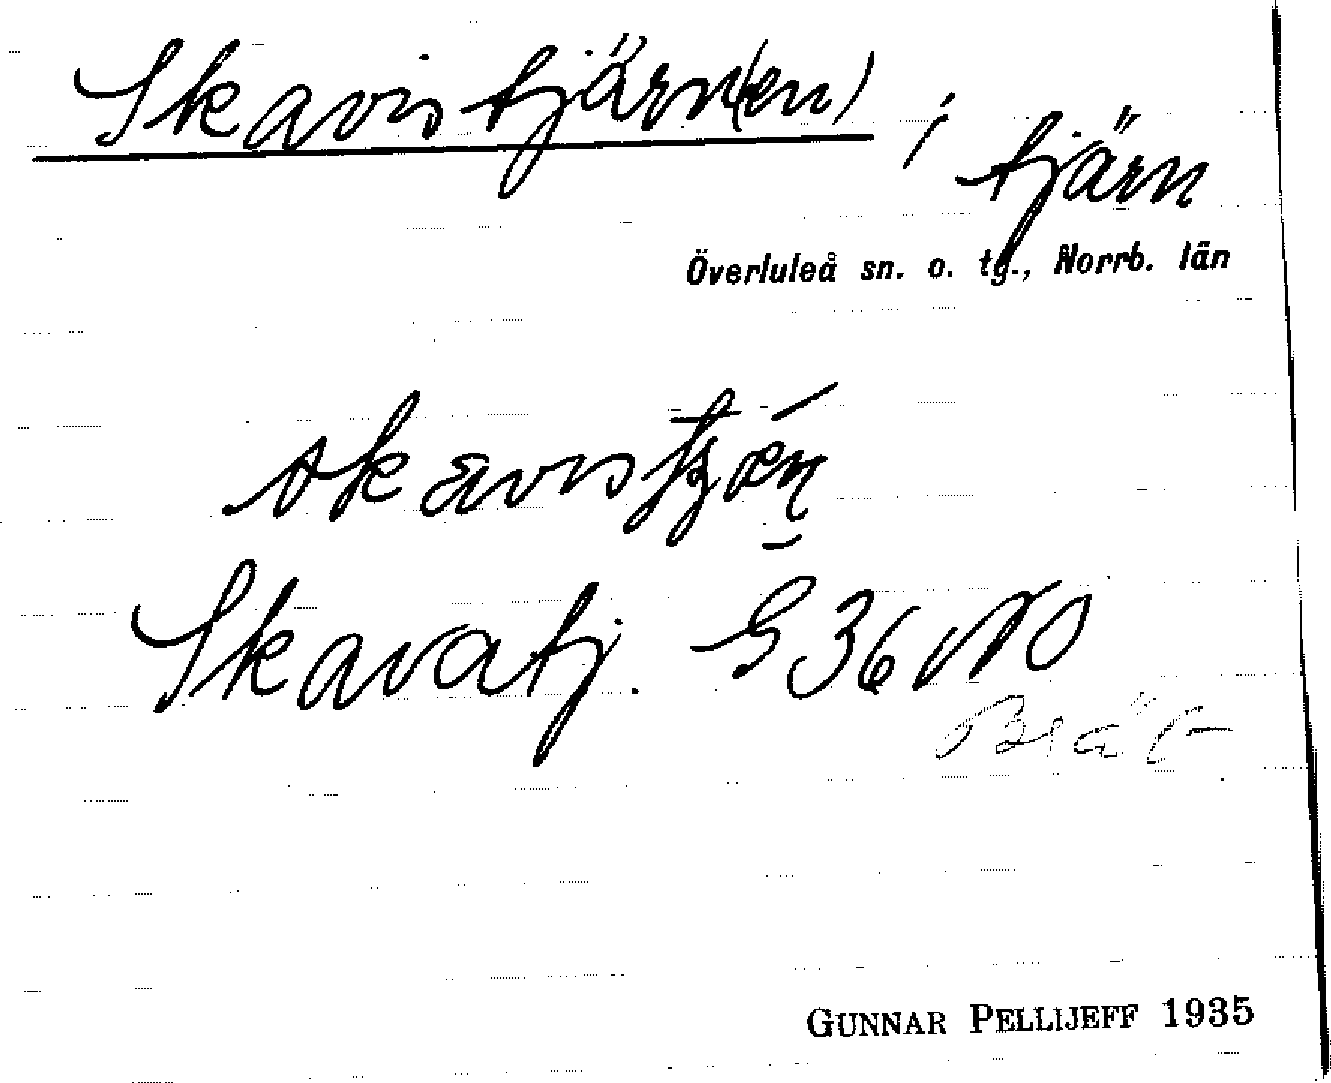 Skavistjärn(en), tjärn
Överluleå sn. o. tg., Norrb. län
Skavatj. G 36 NO
GUNNAR PELLIJEFF 1935